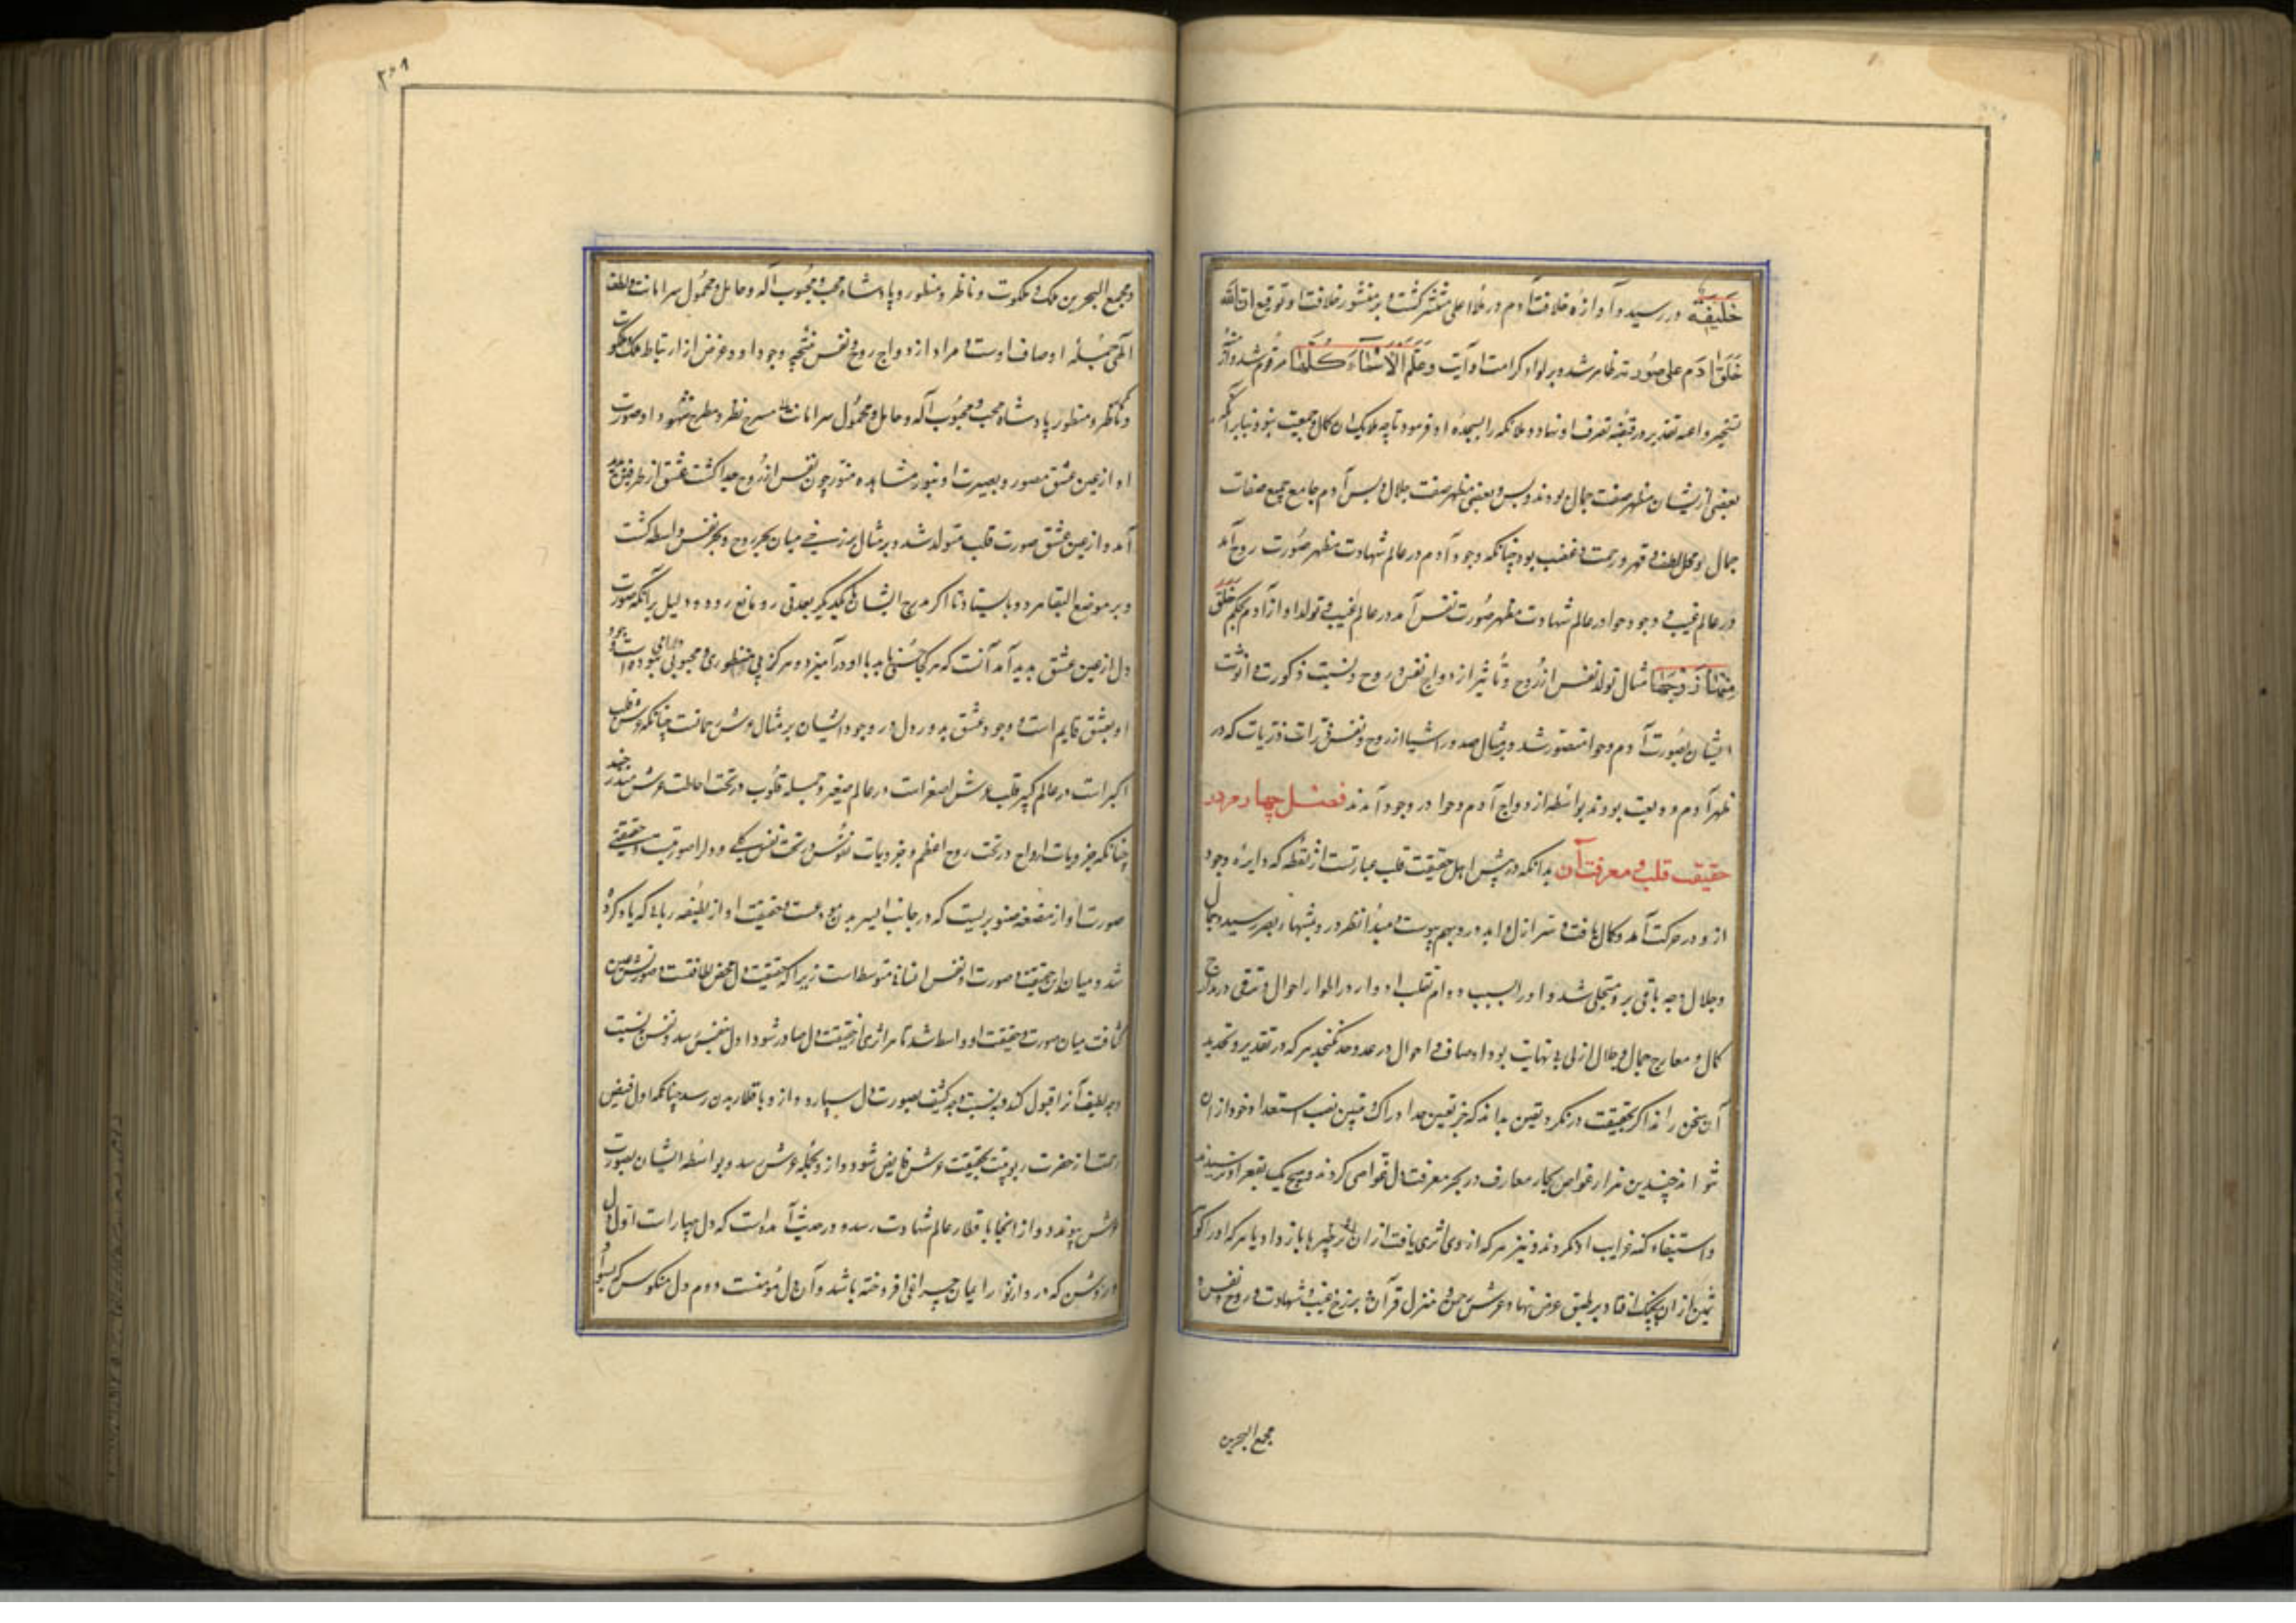 خَلِيفَة در رسید و آوازهٔ خلافت آدم در ملاء اعلی منتشر گشت و بر منشور خلافت او توقیع ان الله
خَلَقَ ادَم علی صُورته ظاهر شد و بر لواء کرامت او آیت وعَلَّمَ الْاَسْمَاءَ كُلَّهَا مرقوم شد و ازمّهٔ
تسخیر و اعنه تقدیر در قبضهٔ تصرف او نهاد و ملائکه را بسجدهٔ او فرمود تا چه ملایک را آن کمال و جمعیت نبود بنابر آنکه
بعضی ازیشان مظهر صفت جمال بودند و بس و بعضی مظهر صفت جلال و بس آدم جامع جمیع صفات
جمال و محل لطف و قهر و رحمت و غضب بود چنانکه وجود آدم در عالم شهادت مظهر صُورت روح آمد
در عالم غیب و وجود حوا در عالم شهادت مظهر صُورت نفس آمد در عالم غیب و تولد او از آدم بحکم خَلَقَ
مِنْهَا زَوْجَهَا مثال تولد نفس از رُوح و تأثیر ازدواج نفس و روح و نسبت ذکورت و انوثت
ایشان بصُورت آدم و حوا متصوّر شد و بر مثال صدور اشیا از روح و نفس ذرات ذریات که در
ظهر آدم ودیعت بودند بواسطه ازدواج آدم و حوا در وجود آمدند فصل چهارم در
حقیقت قلب و معرفت آن بدانکه در پیش اهل حقیقت قلب عبارتست از نقطه که دایرهٔ وجود
ازو در حرکت آمد و کمال یافت و سر ازل و ابد درو بهم پیوست و مبدأ نظر درو بمنتهاء بصر رسید و جمال
و جلال وجه باقی بر و متجلی شد و او را بسبب دوام تقلب ادوار در اطوار احوال و ترقی در مدارج
کمال و معارج جمال و جلال ازلی بی نهایت بود اوصاف و احوال در عد و حد نگنجد هر که در تقدیر و تحدید
آن سخن راند اگر بحقیقت در نگرد یقین بداند که جز تعین حد ادراک و تبیین نصیب استعداد خود از ان
نتواند چندین هزار غواص بحار معارف در بحر معرفت دل غواصی کردند و هیچ یک بقعر او نرسیدند
و استیفاء کنه غرایب او نکردند و نیز هر که از وی اثری یافت از ان اثر خبرها باز داد یا هر که او را گوهری
ثمین از ان بچنگ افتاد بر طبق عرض نهاد عرش رحمن و منزل قرآن و برزخ غیب و شهادت و روح و نفس و
مجمع البحرین
٢٠٩
و مجمع البحرین ملک و ملکوت و ناظر و منظور و پادشاه و محب و محبُوب آله و حامل و محمُول سر امانت و لطف
الهی جمله اوصاف اوست و مراد از ازدواج روح و نفس نتیجه وجود او و غرض از ارتباط ملک و ملکوت
و ناظر و منظور پادشاه محب و محبُوب آله و حامل و محمُول سر امانت مسرح نظر و مطرح شهود او صورت
او از عین عشق مصور و بصیرت او بنور مشاهده منور چون نفس از روح جدا گشت عشق از طرفین پدید
آمد و از عین عشق صورت قلب متولد شد و بر مثال برزخی میان بحر روح و بحر نفس واسطه گشت
و بر موضع التقا هر دو بایستاد تا اگر مرج ایشان با یکدیگر بعدتی رو مانع رود و دلیل بر آنکه صورت
دل از عین عشق پدید آمد آنست که هر کجا حسنی یابد با او درآمیزد و هرگز بی منظوری و محبوبی نبوده است وجود
او بعشق قایم است وجود عشق بدو و دل در وجود ایشان بر مثال عرش رحمانست چنانکه عرش قلب
اکبر است در عالم کبیر قلب عرش اصغر است در عالم صغیر و جمله قلوب در تحت احاطت عرش مندرجند
چنانکه جزویات ارواح در تحت روح اعظم و جزویات نفُوس در تحت نفس کلی و دل را صورتیست و حقیقتی
صورت او از مضغه صنوبریست که در جانب ایسر بدن مودعست و حقیقت او از لطیفه ربانی که یاد کرده
شد و میان این حقیقت و صورت او نفس انسانی متوسط است زیرا که حقیقت دل محض لطافتست و صورتش عین
کثافت میان صورت و حقیقت او واسطه شد تا هر اثری از حقیقت دل صادر شود اول بنفس رسد و نفس بنسبت
وجه لطیف آنرا قبول کند و بنسبت وجه کثیف بصورت دل سپارد و از و باقطار بدن رسد چنانکه اول فیض
رحمت از حضرت ربوبیت بحقیقت عرش فایض شود و از و بحمله عرش رسد و بواسطهٔ ایشان بصورت
عرش پیوندد و از انجا باقطار عالم شهادت رسد و در حدیث آمده است که دل چهار است اول دل
روشن که در و از نور ایمان چراغی افروخته باشد و آن دل مؤمنست دوم دل منکوس که